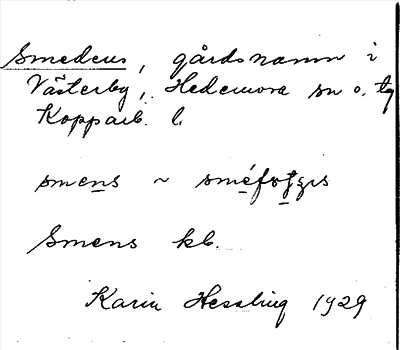 Smedens, gårdsnamn i
Västerby, Hedemora sn o. tg
Kopparb. l.
smens ~
Smens kb.
Karin Hessling 1929